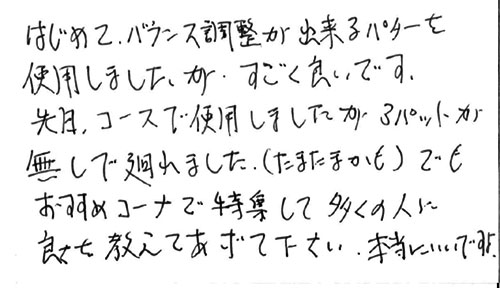 はじめて、バランス調整が出来るパターを
使用しましたが、すごく良いです。
先日、コースで使用しましたが3パットが
無しで廻れました。(たまたまかも)でも
おすすめコーナーで特集して多くの人に
良さを教えてあげて下さい。本当にいいです。